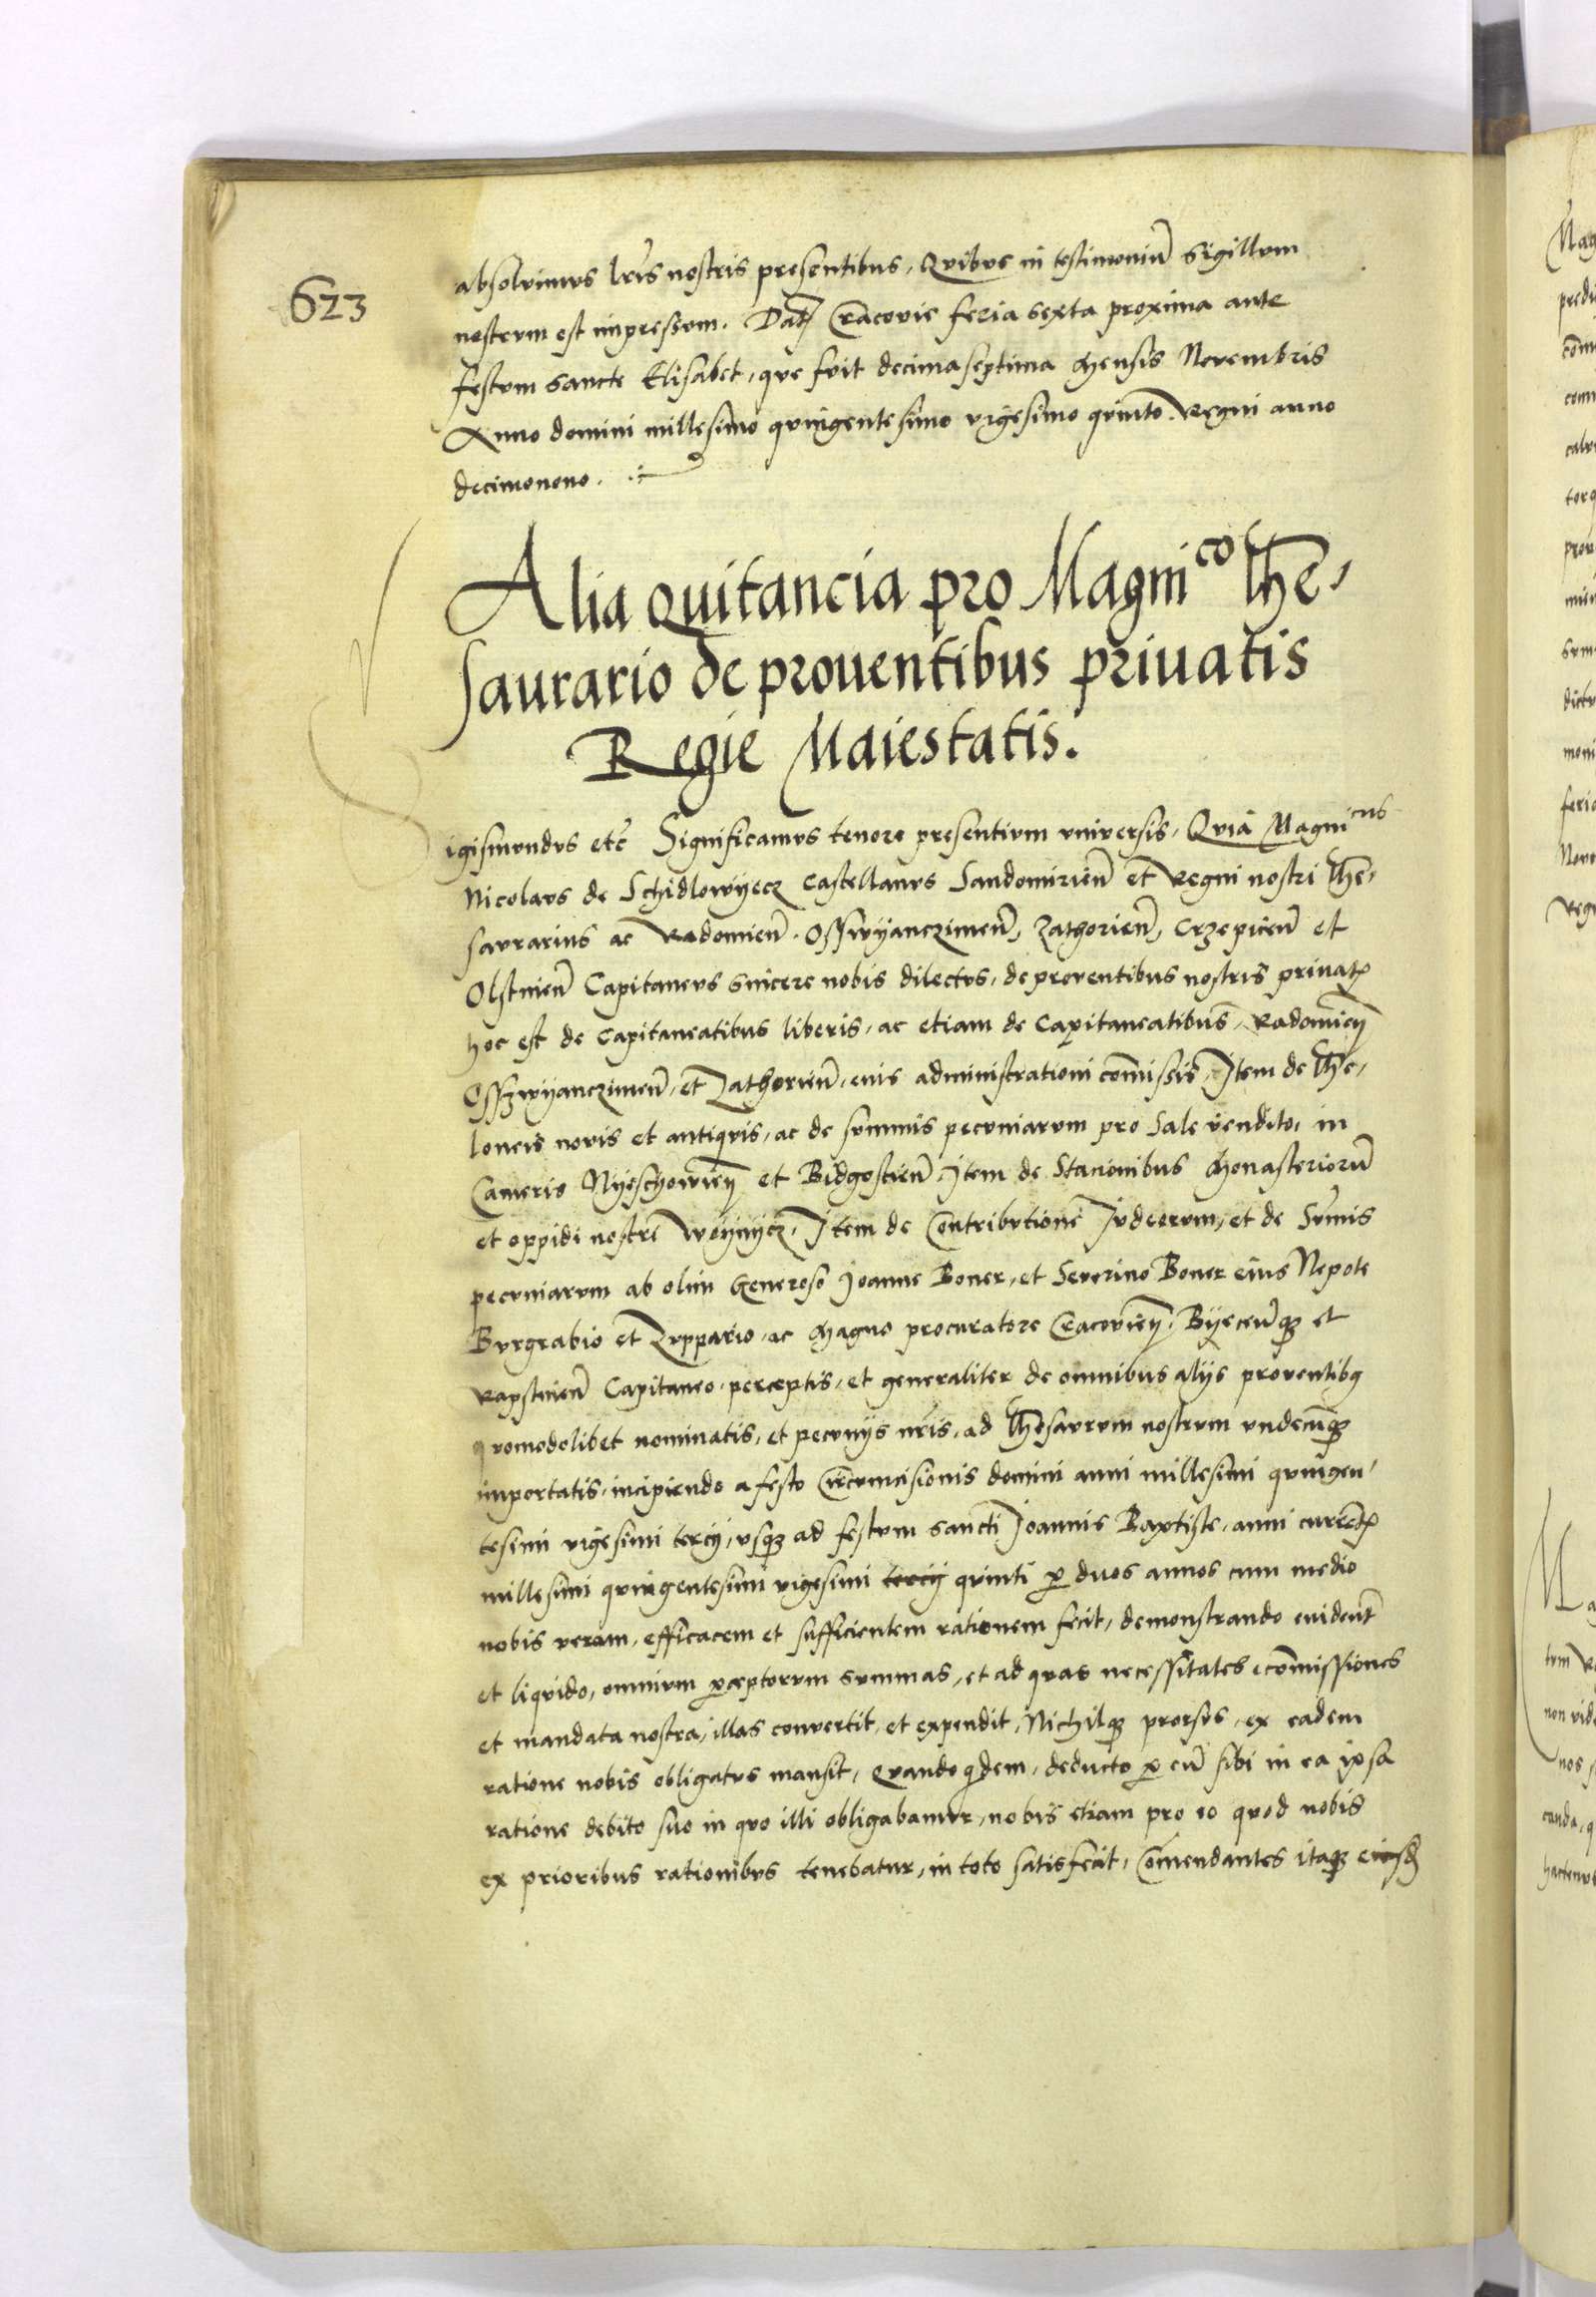 623
absolvimus lr̃is nostris presentibus, Quibus in testimoniũ sigillum
nostrum est impressum. Datʒ Cracovie feria sexta proxima ante
festum sancte Elisabet, que fuit decimaseptima Mensis Novembris
Anno domini millesimo quingentesimo vigesimo quinto. Regni anno
decimonono.
Alia quitancia pro Magnico The,
saurario de prouentibus priuatis
Regie Maiestatis.
Sigismundus etc̃ Significamus tenore presentium universis, Quia Magnicus
Nicolaus de Schidlowyecz Castellanus Sandomirieñ et Regni nostri The,
saurarius ac Radomieñ. Osswyanczimeñ, Zathorieñ, Crzepiceñ et
Olstinieñ Capitaneus sincere nobis dilectus, de proventibus nostris privatꝭ
hoc est de Capitaneatibus liberis, ac etiam de Capitaneatibus, Radomieñ
Osszwyanczimeñ, et Zathorieñ, eius administrationi com̃issis, Item de The,
loneis novis et antiquis, ac de summis pecuniarum pro Sale vendito, in
Cameris Nyeschowieñ et Bidgostieñ, Item de Stacionibus Monasteriorũ
et oppidi nostri Woynycz, Item de Contributione Iudeorum, et de Sum̃is
pecuniarum ab olim Generoso Ioanne Boner, et Severino Boner eius Nepote
Burgrabio et Zuppario, ac Magno procuratore Cracovieñ, Byeceñqʒ et
Rapstinieñ Capitaneo, perceptis, et generaliter de omnibus alijs proventibꝰ
quomodolibet nominatis, et pecunijs nr̃is, ad Thesaurum nostrum undecũqʒ
importatis, incipiendo a festo Circumcisionis domini anni millesimi quingen,
tesimi vigesimi tercij, usqʒ ad festum sancti Ioannis Baptiste, anni currẽtꝭ
millesimi quingentesimi vigesimi tercij quinti ꝑ duos annos cum medio
nobis veram, efficacem et sufficientem rationem fecit, demonstrando evident̃
et liquido, omnium ꝑceptorum summas, et ad quas necessitates com̃issiones
et mandata nostra, illas convertit, et expendit, Nichilqʒ prorsus, ex eadem
ratione nobis obligatus mansit, quando qͥdem, deducto ꝑ eũ sibi in ea ipsa
ratione debito suo in quo illi obligabamur, nobis etiam pro eo quod nobis
ex prioribus rationibus tenebatur, in toto satisfecit, Com̃endantes itaqʒ eiusd̃